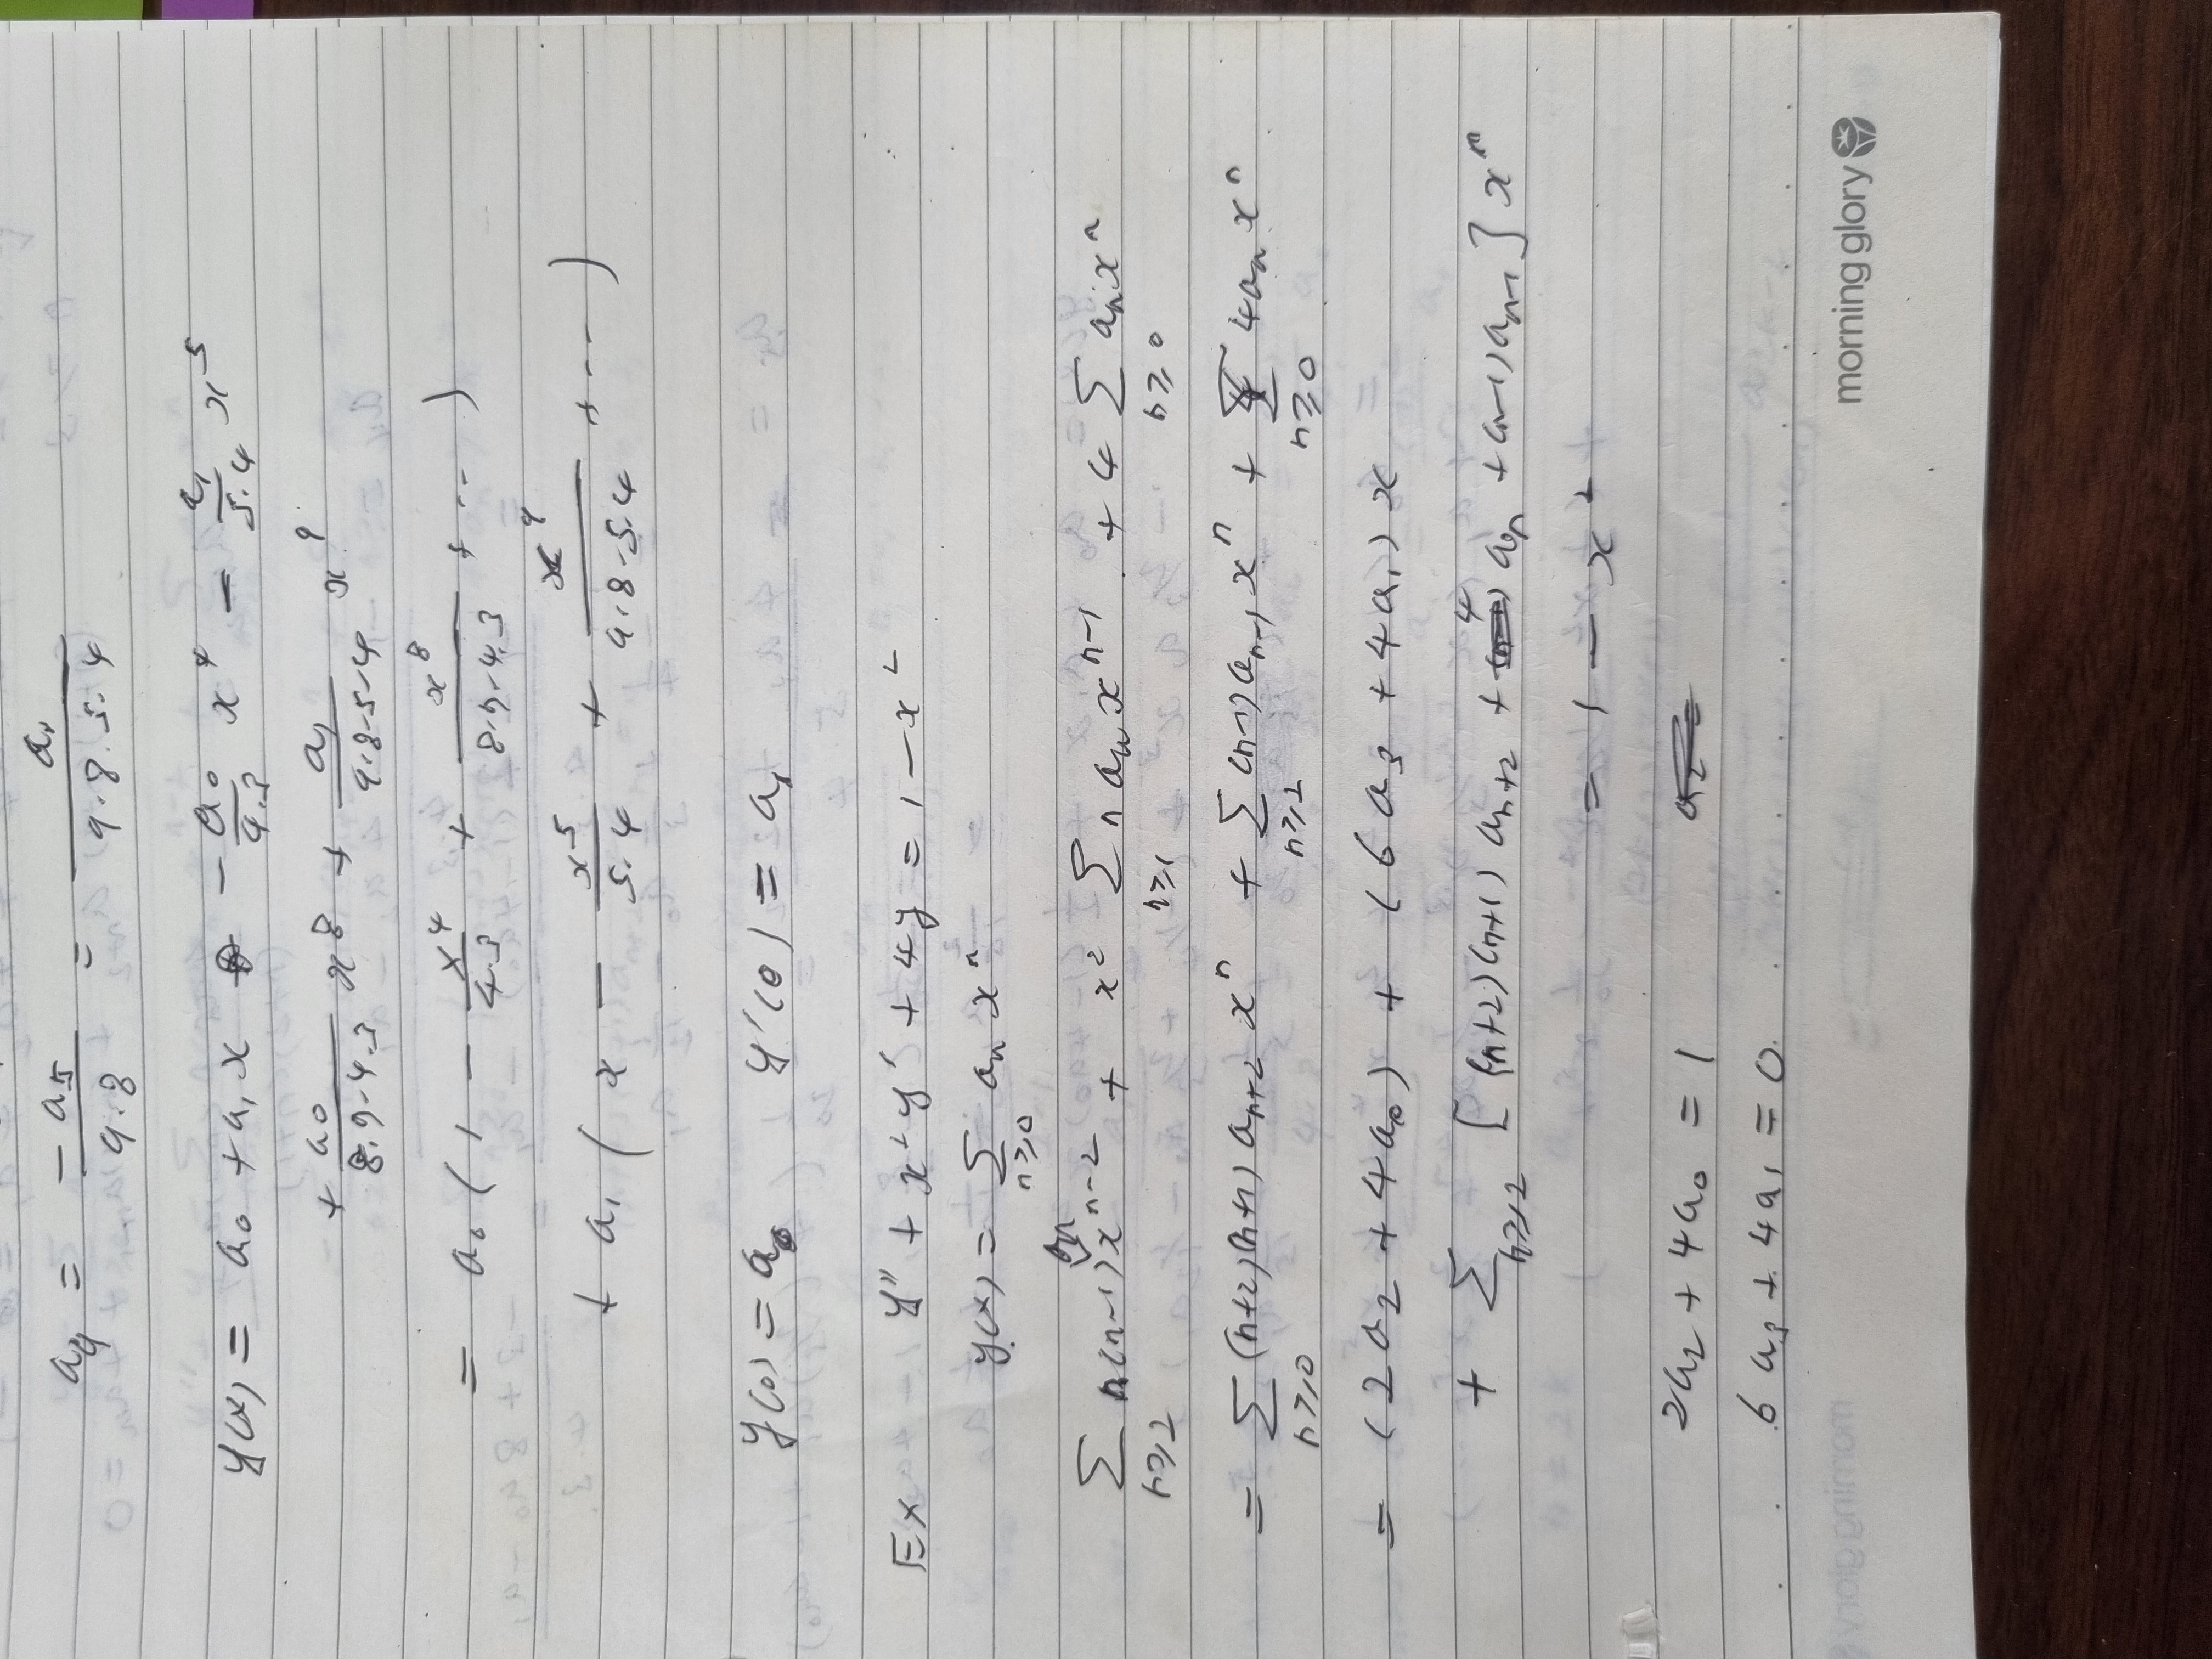 a₉ = -a₅/(9·8) = a₁/(9·8·5·4)
y(x) = a₀ + a₁x - a₀/(4·3) x⁴ - a₁/(5·4) x⁵
+ a₀/(8·7·4·3) x⁸ + a₁/(9·8·5·4) x⁹
= a₀ (1 - x⁴/(4·3) + x⁸/(8·7·4·3) + ··· )
+ a₁ (x - x⁵/(5·4) + x⁹/(9·8·5·4) + ··· )
y(0) = a₀ y'(0) = a₁
Ex y'' + x²y' + 4y = 1 - x²
y(x) = Σ_{n≥0} aₙ xⁿ
Σ_{n≥2} n(n-1) aₙ xⁿ⁻² + x² Σ_{n≥1} n aₙ xⁿ⁻¹ + 4 Σ_{n≥0} aₙ xⁿ
= Σ_{n≥0} (n+2)(n+1) aₙ₊₂ xⁿ + Σ_{n≥2} (n-1) aₙ₋₁ xⁿ + Σ_{n≥0} 4aₙ xⁿ
= (2a₂ + 4a₀) + (6a₃ + 4a₁)x
+ Σ_{n≥2} [(n+2)(n+1) aₙ₊₂ + 4 aₙ + (n-1)aₙ₋₁] xⁿ
= 1 - x²
2a₂ + 4a₀ = 1
6a₃ + 4a₁ = 0
morning glory